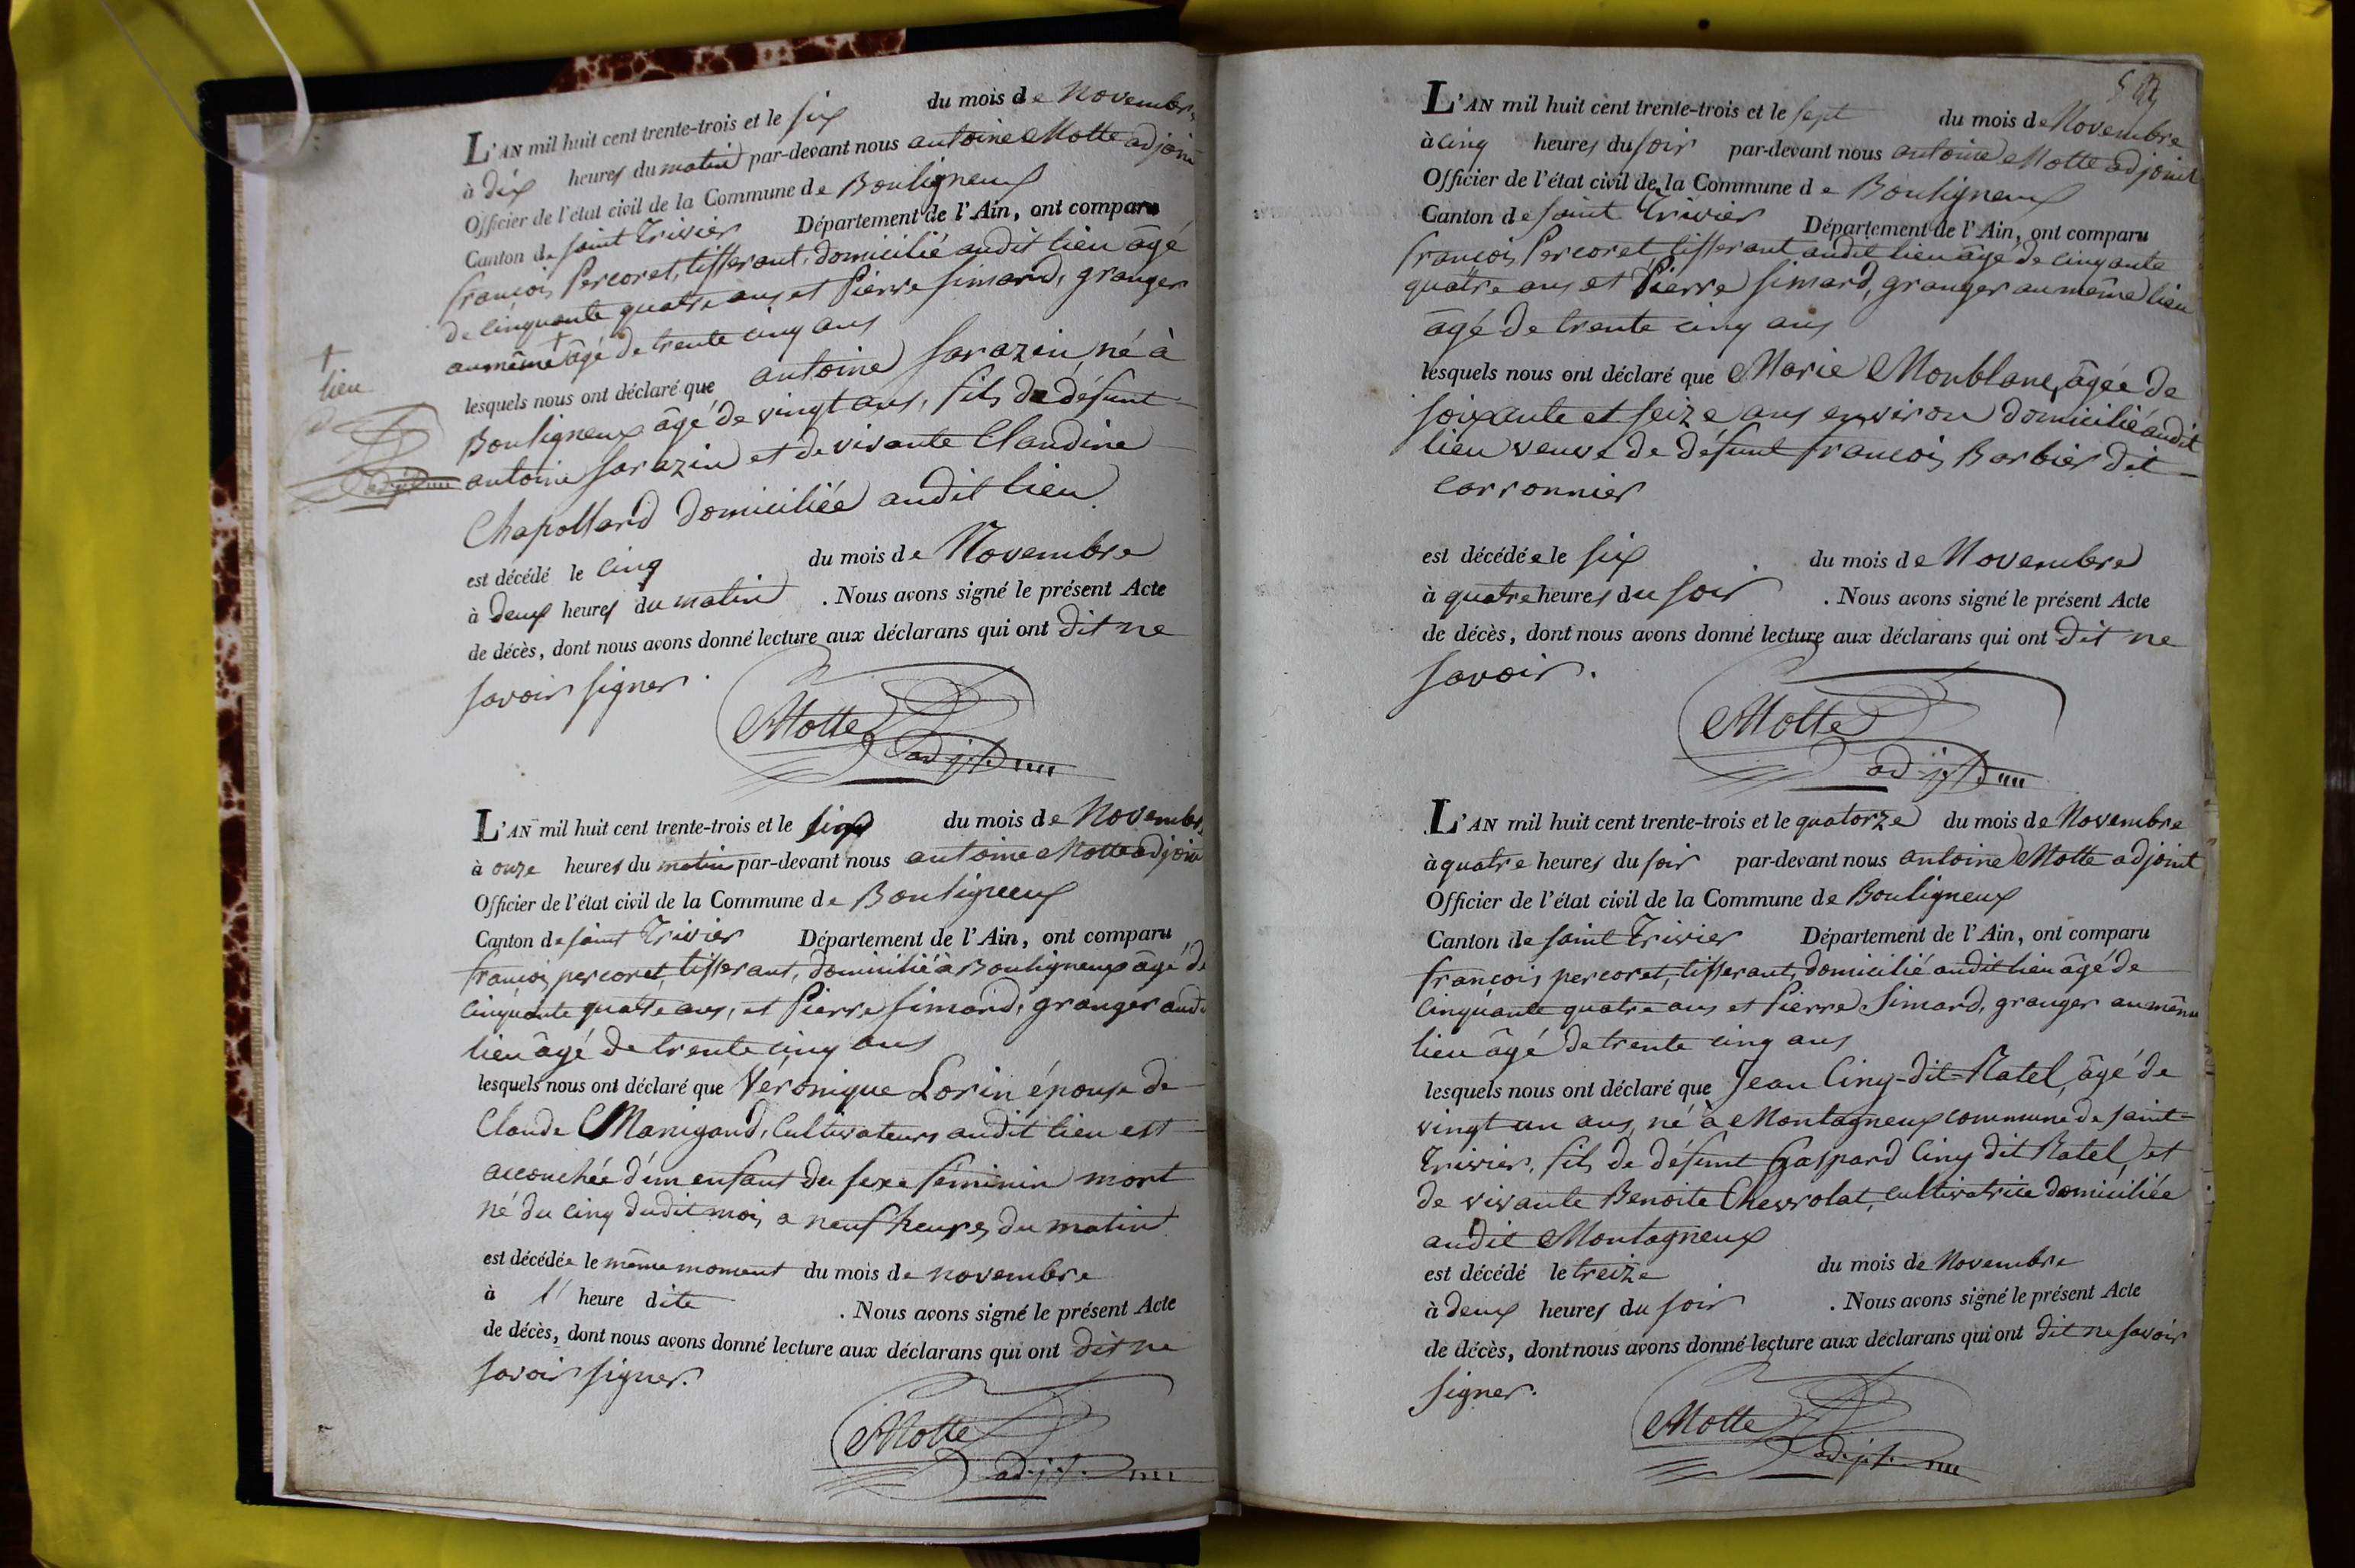 L'AN mil huit cent trente-trois et le six du mois de Novembre
à dix heures du matin par-devant nous antoine Motte adjoint
Officier de l'état civil de la Commune de Bouligneux
Canton de saint Trivier Département de l'Ain, ont comparu
françois Percoret, tisserant, domicilié audit lieu âgé
de cinquante quatre ans et Pierre Simard, granger
au même + âgé de trente cinq ans
+
lieu
lesquels nous ont déclaré que antoine Sarazin, né à
Bouligneux âgé de vingt ans, fils de défunt
antoine Sarazin et de vivante Claudine
Chapollard domiciliée audit lieu
est décédé le cinq du mois de Novembre
à deux heures du matin . Nous avons signé le présent Acte
de décès, dont nous avons donné lecture aux déclarans qui ont dit ne
savoir signer.
Motte
adjt
L'AN mil huit cent trente-trois et le six du mois de Novembre
à onze heures du matin par-devant nous antoine Motte adjoint
Officier de l'état civil de la Commune de Bouligneux
Canton de saint Trivier Département de l'Ain, ont comparu
françois percoret, tisserant, domicilié à Bouligneux âgé de
cinquante quatre ans, et Pierre Simard, granger aud.
lieu âgé de trente cinq ans
lesquels nous ont déclaré que Véronique Lorin épouse de
Claude Manigand, Cultivateurs audit lieu est
accouchée d'un enfant du sexe féminin mort
né du cinq dudit mois a neuf heures du matin
est décédée le même moment du mois de novembre
à l' heure dite . Nous avons signé le présent Acte
de décès, dont nous avons donné lecture aux déclarans qui ont dit ne
savoir signer.
Motte
adjt
L'AN mil huit cent trente-trois et le sept du mois de Novembre
à cinq heures du soir par-devant nous antoine Motte adjoint
Officier de l'état civil de la Commune de Bouligneux
Canton de saint Trivier Département de l'Ain, ont comparu
françois Percoret tisserant audit lieu âgé de cinquante
quatre ans et Pierre Simard, granger au même lieu
âgé de trente cinq ans
lesquels nous ont déclaré que Marie Monblanc, âgée de
soixante et seize ans environ domicilié audit
lieu veuve de défunt françois Barbier dit
carronnier
est décédée le six du mois de Novembre
à quatre heures du soir . Nous avons signé le présent Acte
de décès, dont nous avons donné lecture aux déclarans qui ont dit ne
savoir.
Motte
adjt
L'AN mil huit cent trente-trois et le quatorze du mois de Novembre
à quatre heures du soir par-devant nous antoine Motte adjoint
Officier de l'état civil de la Commune de Bouligneux
Canton de saint Trivier Département de l'Ain, ont comparu
françois percoret, tisserant, domicilié audit lieu âgé de
cinquante quatre ans et Pierre Simard, granger au même
lieu âgé de trente cinq ans
lesquels nous ont déclaré que Jean Cinq-dit-Ratel, âgé de
vingt un ans, né à Montagneux commune de saint
Trivier, fils de défunt Gaspard Cinq dit Ratel, et
de vivante Benoite Chevrolat, cultivatrice domiciliée
audit Montagneux
est décédé le treize du mois de Novembre
à deux heures du soir . Nous avons signé le présent Acte
de décès, dont nous avons donné lecture aux déclarans qui ont dit ne savoir
signer.
Motte
adjt